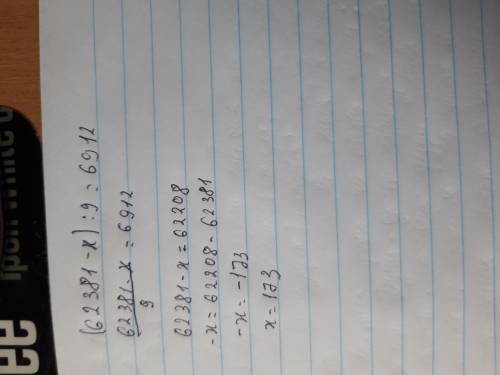 (62381-x):9=6912
62381-x/9=6912
62381-x=62208
-x=62208-62381
-x=-173
x=173